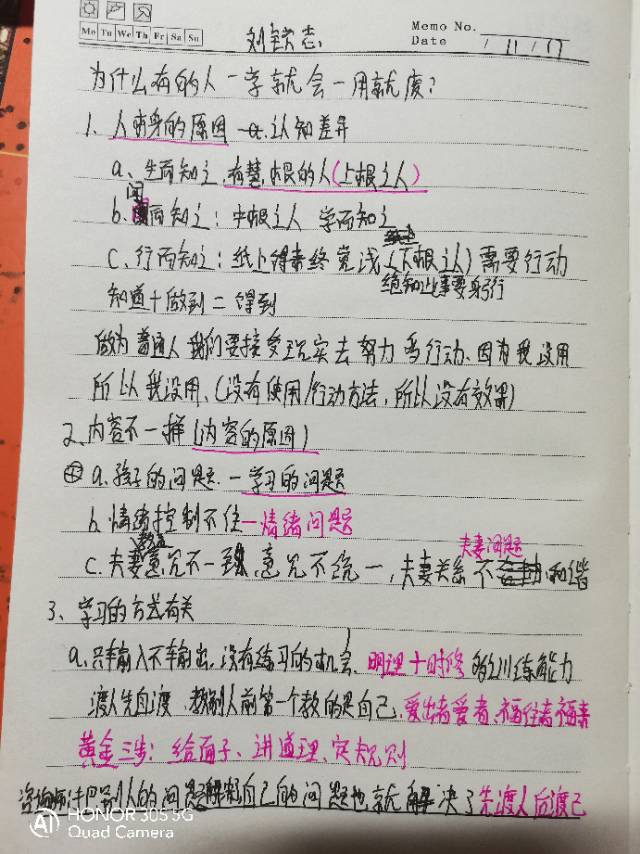 Memo No.
Mo Tu We Th Fr Sa Su
Date / 11 / 17
为什么有的人一学就会一用就废？
1. 人本身的原因 一a.认知差异
a、生而知之、有慧根的人（上根之人）
b、闻而知之：中根之人 学而知之
C、行而知之：纸上得来终觉浅（下根之人）需要行动
绝知此事要身行
知道＋做到＝得到
做为普通人我们要接受现实去努力 行动、因为我没用
所以我没用、（没有使用/行动方法，所以没有效果）
2、内容不一样（内容的原因）
a、孩子的问题、一学习的问题
b、情绪控制不住一情绪问题
夫妻问题
C、夫妻教育意见不一致、意见不统一，夫妻关系不和谐
3、学习的方式有关
a、只输入不输出，没有练习的机会、明理＋时修 的训练能力
渡人先自渡、教别人前第一个教的是自己、爱出者爱者、福往者福来
黄金三步：给面子、讲道理、定规则
别人的问题解决自己的问题也就解决了先渡人后渡己
AI HONOR 30S 5G
Quad Camera